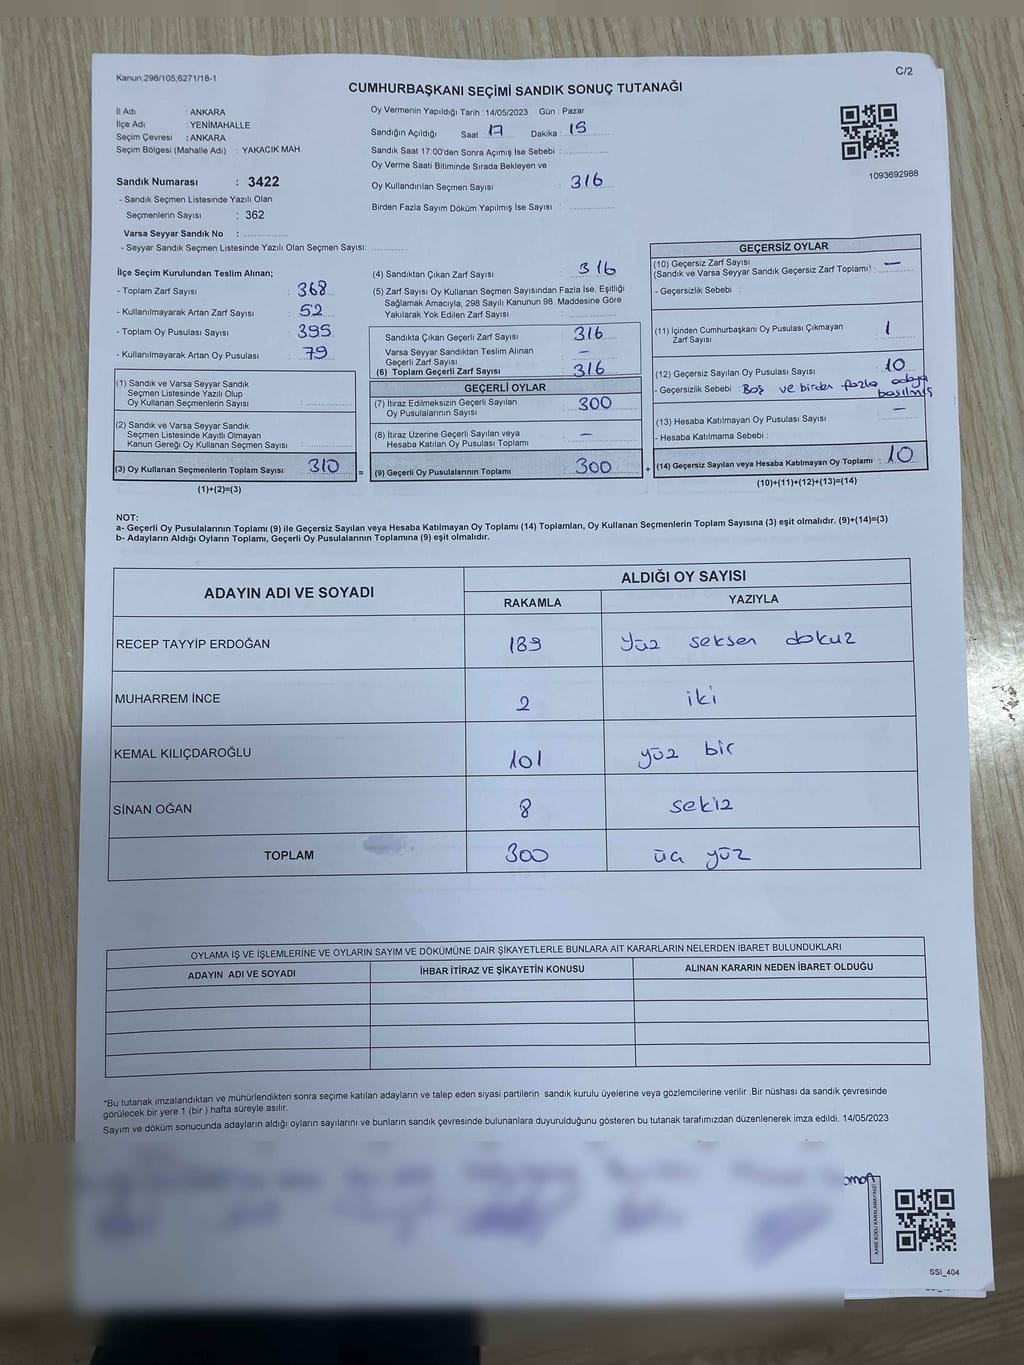 Kanun.298/105,6271/18-1
C/2
CUMHURBAŞKANI SEÇİMİ SANDIK SONUÇ TUTANAĞI
İl Adı : ANKARA
İlçe Adı : YENİMAHALLE
Seçim Çevresi : ANKARA
Seçim Bölgesi (Mahalle Adı) : YAKACIK MAH.
Sandık Numarası : 3422
- Sandık Seçmen Listesinde Yazılı Olan
Seçmenlerin Sayısı : 362
Varsa Seyyar Sandık No :
- Seyyar Sandık Seçmen Listesinde Yazılı Olan Seçmen Sayısı:
Oy Vermenin Yapıldığı Tarih : 14/05/2023 Gün : Pazar
Sandığın Açıldığı Saat 17 Dakika : 15
Sandık Saat 17:00'den Sonra Açımış İse Sebebi :
Oy Verme Saati Bitiminde Sırada Bekleyen ve
Oy Kullandırılan Seçmen Sayısı : 316
Birden Fazla Sayım Döküm Yapılmış İse Sayısı :
1093692988
İlçe Seçim Kurulundan Teslim Alınan;
- Toplam Zarf Sayısı : 368
- Kullanılmayarak Artan Zarf Sayısı : 52
- Toplam Oy Pusulası Sayısı : 395
- Kullanılmayarak Artan Oy Pusulası : 79
(1) Sandık ve Varsa Seyyar Sandık
Seçmen Listesinde Yazılı Olup
Oy Kullanan Seçmenlerin Sayısı :
(2) Sandık ve Varsa Seyyar Sandık
Seçmen Listesinde Kayıtlı Olmayan
Kanun Gereği Oy Kullanan Seçmen Sayısı :
(3) Oy Kullanan Seçmenlerin Toplam Sayısı : 310 =
(1)+(2)=(3)
(4) Sandıktan Çıkan Zarf Sayısı : 316
(5) Zarf Sayısı Oy Kullanan Seçmen Sayısından Fazla İse, Eşitliği
Sağlamak Amacıyla, 298 Sayılı Kanunun 98. Maddesine Göre
Yakılarak Yok Edilen Zarf Sayısı :
Sandıkta Çıkan Geçerli Zarf Sayısı : 316
Varsa Seyyar Sandıktan Teslim Alınan
Geçerli Zarf Sayısı : —
(6) Toplam Geçerli Zarf Sayısı : 316
GEÇERLİ OYLAR
(7) İtiraz Edilmeksizin Geçerli Sayılan
Oy Pusulalarının Sayısı : 300
(8) İtiraz Üzerine Geçerli Sayılan veya
Hesaba Katılan Oy Pusulası Toplamı : —
(9) Geçerli Oy Pusulalarının Toplamı : 300 +
GEÇERSİZ OYLAR
(10) Geçersiz Zarf Sayısı
(Sandık ve Varsa Seyyar Sandık Geçersiz Zarf Toplamı) : —
- Geçersizlik Sebebi :
(11) İçinden Cumhurbaşkanı Oy Pusulası Çıkmayan
Zarf Sayısı : 1
(12) Geçersiz Sayılan Oy Pusulası Sayısı : 10
- Geçersizlik Sebebi : Boş ve birden fazla adaya
basılmış
(13) Hesaba Katılmayan Oy Pusulası Sayısı : —
- Hesaba Katılmama Sebebi :
(14) Geçersiz Sayılan veya Hesaba Katılmayan Oy Toplamı : 10
(10)+(11)+(12)+(13)=(14)
NOT:
a- Geçerli Oy Pusulalarının Toplamı (9) ile Geçersiz Sayılan veya Hesaba Katılmayan Oy Toplamı (14) Toplamları, Oy Kullanan Seçmenlerin Toplam Sayısına (3) eşit olmalıdır. (9)+(14)=(3)
b- Adayların Aldığı Oyların Toplamı, Geçerli Oy Pusulalarının Toplamına (9) eşit olmalıdır.
ADAYIN ADI VE SOYADI
ALDIĞI OY SAYISI
RAKAMLA YAZIYLA
RECEP TAYYİP ERDOĞAN 189 yüz seksen dokuz
MUHARREM İNCE 2 iki
KEMAL KILIÇDAROĞLU 101 yüz bir
SİNAN OĞAN 8 sekiz
TOPLAM 300 üç yüz
OYLAMA İŞ VE İŞLEMLERİNE VE OYLARIN SAYIM VE DÖKÜMÜNE DAİR ŞİKAYETLERLE BUNLARA AİT KARARLARIN NELERDEN İBARET BULUNDUKLARI
ADAYIN ADI VE SOYADI İHBAR İTİRAZ VE ŞİKAYETİN KONUSU ALINAN KARARIN NEDEN İBARET OLDUĞU
*Bu tutanak imzalandıktan ve mühürlendikten sonra seçime katılan adayların ve talep eden siyasi partilerin sandık kurulu üyelerine veya gözlemcilerine verilir .Bir nüshası da sandık çevresinde
görülecek bir yere 1 (bir ) hafta süreyle asılır.
Sayım ve döküm sonucunda adayların aldığı oyların sayılarını ve bunların sandık çevresinde bulunanlara duyurulduğunu gösteren bu tutanak tarafımızdan düzenlenerek imza edildi. 14/05/2023
KARE KODU KARALAMAYINIZ!
SSİ_404